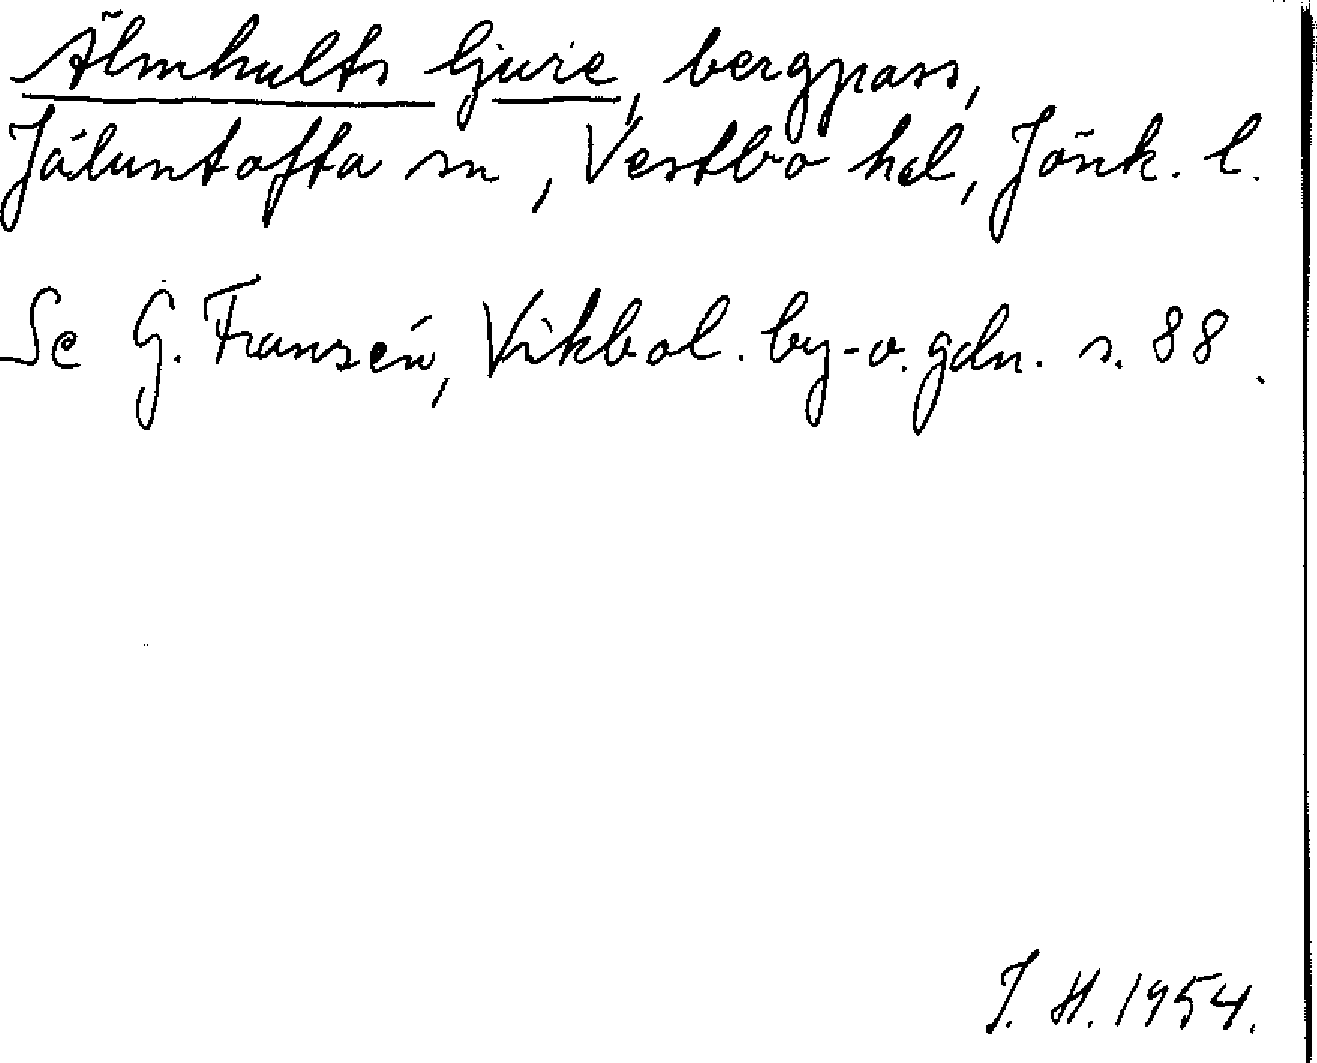 Älmhults ljure, bergpass,
Jäluntofta sn, Vestbo hd, Jönk. l.
Se G. Franzén, Vikbol. by- o. gdn. s. 88.
J. H. 1954.